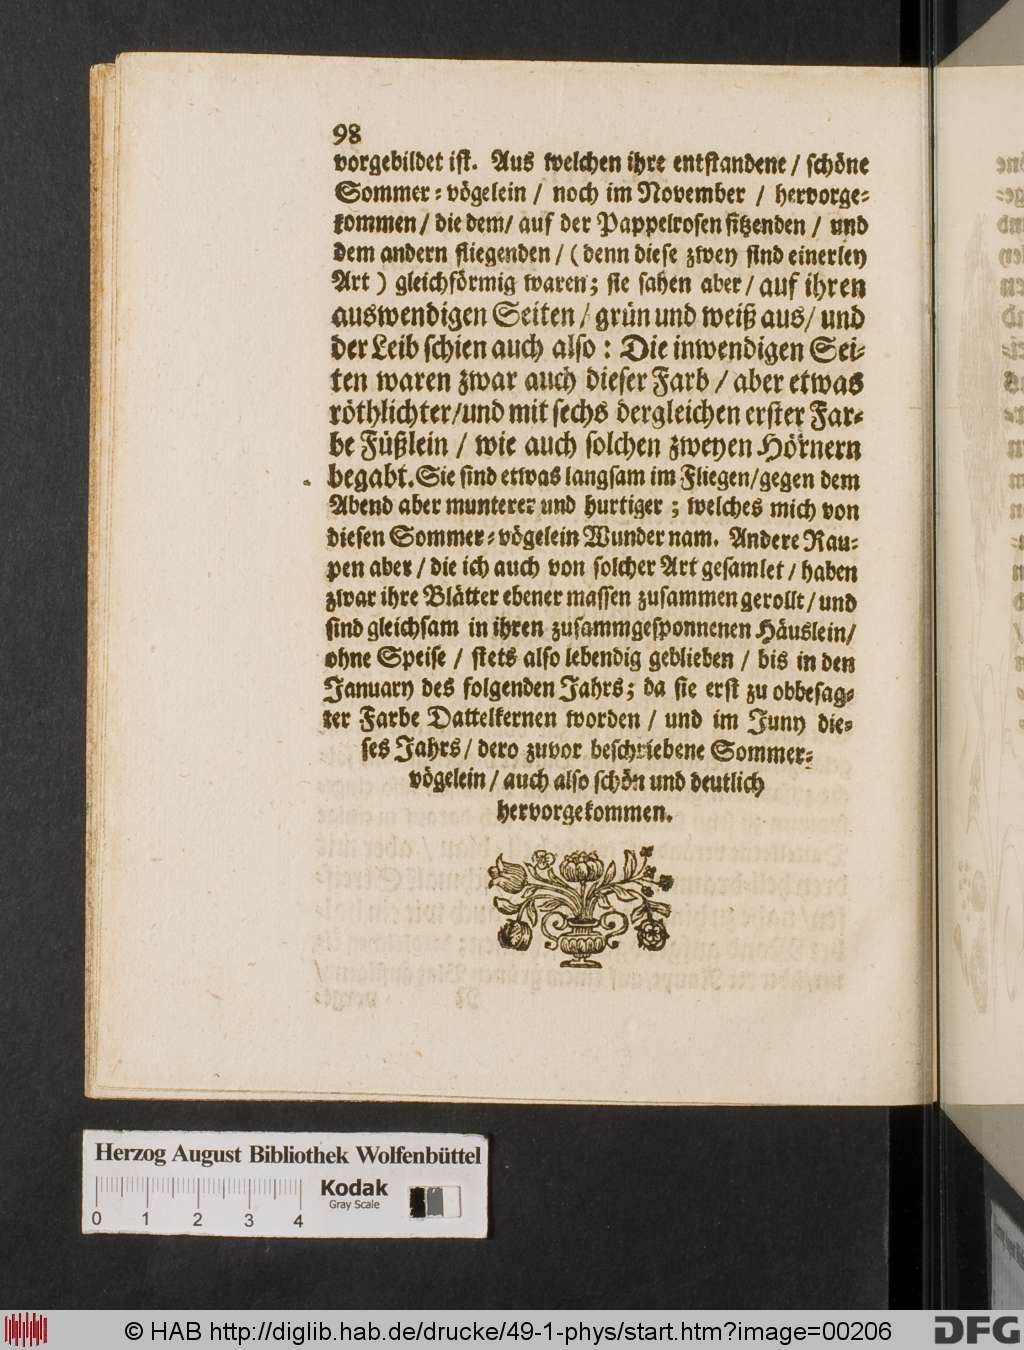 98
vorgebildet ist. Aus welchen ihre entstandene / schöne
Sommer-vögelein / noch im November / hervorge-
kommen / die dem / auf der Pappelrosen sitzenden / und
dem andern fliegenden / ( denn diese zwey sind einerley
Art ) gleichförmig waren; sie sahen aber / auf ihren
auswendigen Seiten / grün und weiß aus / und
der Leib schien auch also : Die inwendigen Sei-
ten waren zwar auch dieser Farb / aber etwas
röthlichter / und mit sechs dergleichen erster Far-
be Füßlein / wie auch solchen zweyen Hörnern
begabt. Sie sind etwas langsam im Fliegen / gegen dem
Abend aber munterer und hurtiger ; welches mich von
diesen Sommer-vögelein Wunder nam. Andere Rau-
pen aber / die ich auch von solcher Art gesamlet / haben
zwar ihre Blätter ebener massen zusammen gerollt / und
sind gleichsam in ihren zusammgesponnenen Häuslein /
ohne Speise / stets also lebendig geblieben / bis in den
January des folgenden Jahrs; da sie erst zu obbesag-
ter Farbe Dattelkernen worden / und im Juny die-
ses Jahrs / dero zuvor beschriebene Sommer-
vögelein / auch also schön und deutlich
hervorgekommen.
Herzog August Bibliothek Wolfenbüttel
Kodak
Gray Scale
0 1 2 3 4
© HAB http://diglib.hab.de/drucke/49-1-phys/start.htm?image=00206
DFG